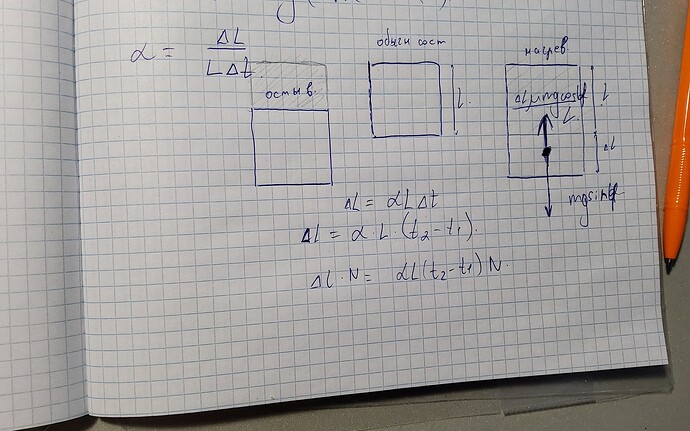 α = ΔL / LΔt
остыв.
обычн сост
L
нагрев.
L
ΔL
mgsinφ
ΔL = αLΔt
ΔL = α·L·(t₂-t₁).
ΔL·N = αL(t₂-t₁)N.